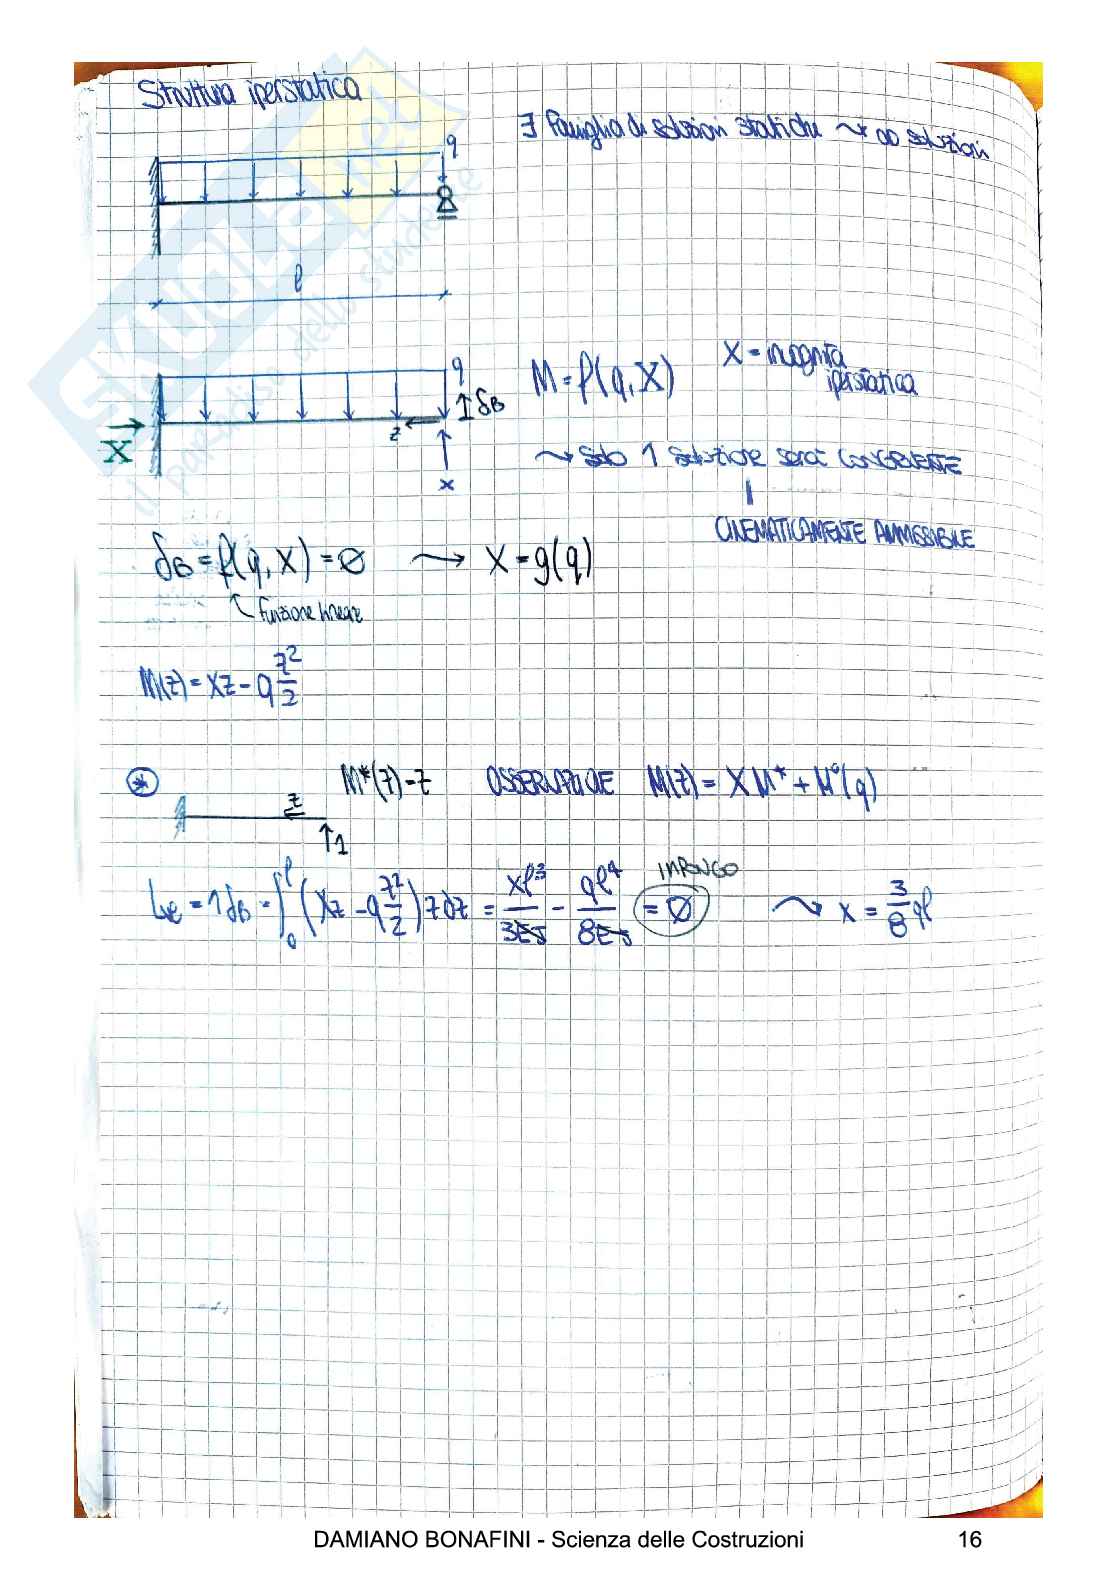 Struttura iperstatica
∃ famiglia di soluzioni statiche ⤳ ∞ soluzioni
q
l
q
δB
z
X
x
M = f(q, X)
X = incognita
iperstatica
⤳ Solo 1 soluzione sarà CONGRUENTE
CINEMATICAMENTE AMMISSIBILE
δB = f(q, X) = ∅ ⤳ X = g(q)
funzione lineare
M(z) = Xz - q z²/2
* M*(z) = z OSSERVAZIONE M(z) = X M* + M°(q)
z
1
IMPONGO
Lve = 1 δB = ∫₀ˡ (Xz - q z²/2) z dz = Xl³/3EJ - ql⁴/8EJ = ∅ ⤳ X = 3/8 ql
SKUOLA.net
il paradiso dello studente
DAMIANO BONAFINI - Scienza delle Costruzioni 16